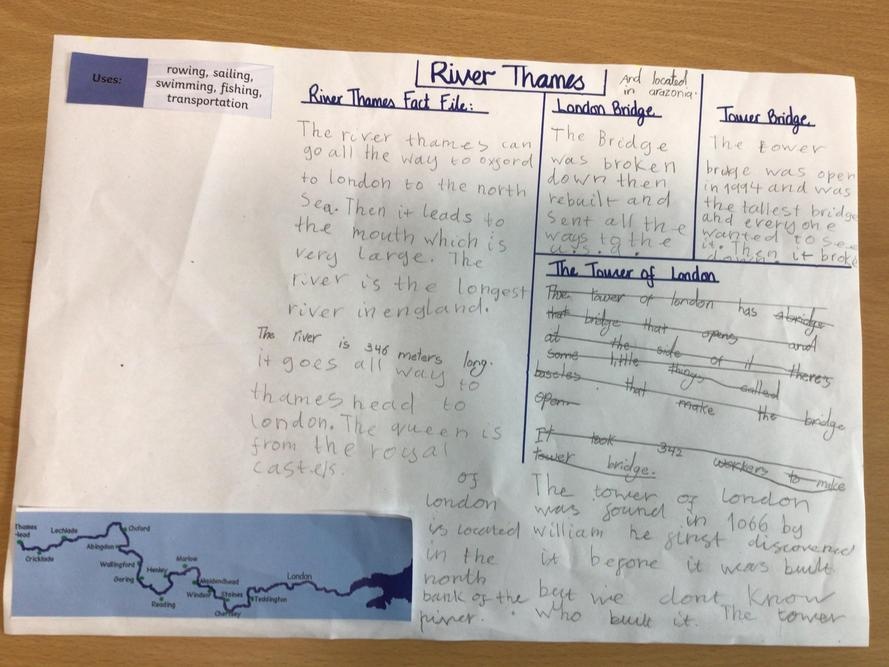 Uses:
rowing, sailing,
swimming, fishing,
transportation
River Thames
And located
in arazonia.
River Thames Fact File:
The river thames can
go all the way to oxford
to london to the north
Sea. Then it leads to
the mouth which is
very large. The
river is the longest
river in england.
The river is 346 meters long.
it goes all way to
thames head to
london. The queen is
from the royal
castels.
London Bridge
The Bridge
was broken
down then
rebuilt and
sent all the
ways to the
u.s.a.
Tower Bridge
The tower
bridge was open
in 1994 and was
the tallest bridge
and everyone
wanted to see
it. Then it broke
down.
The Tower of London
The tower of london has a bridge
that bridge that opens and
at the side of it theres
some little things called
that make the bridge
open
It took 342 workers to make
tower bridge.
The tower of london
was found in 1066 by
william he first discovered
it before it was built
but we dont know
who built it. The tower
of
london
is located
in the
north
bank of the
river.
Thames
Head
Cricklade
Lechlade
Oxford
Abingdon
Wallingford
Goring
Reading
Henley
Marlow
Maidenhead
Windsor
Staines
Chertsey
Teddington
London